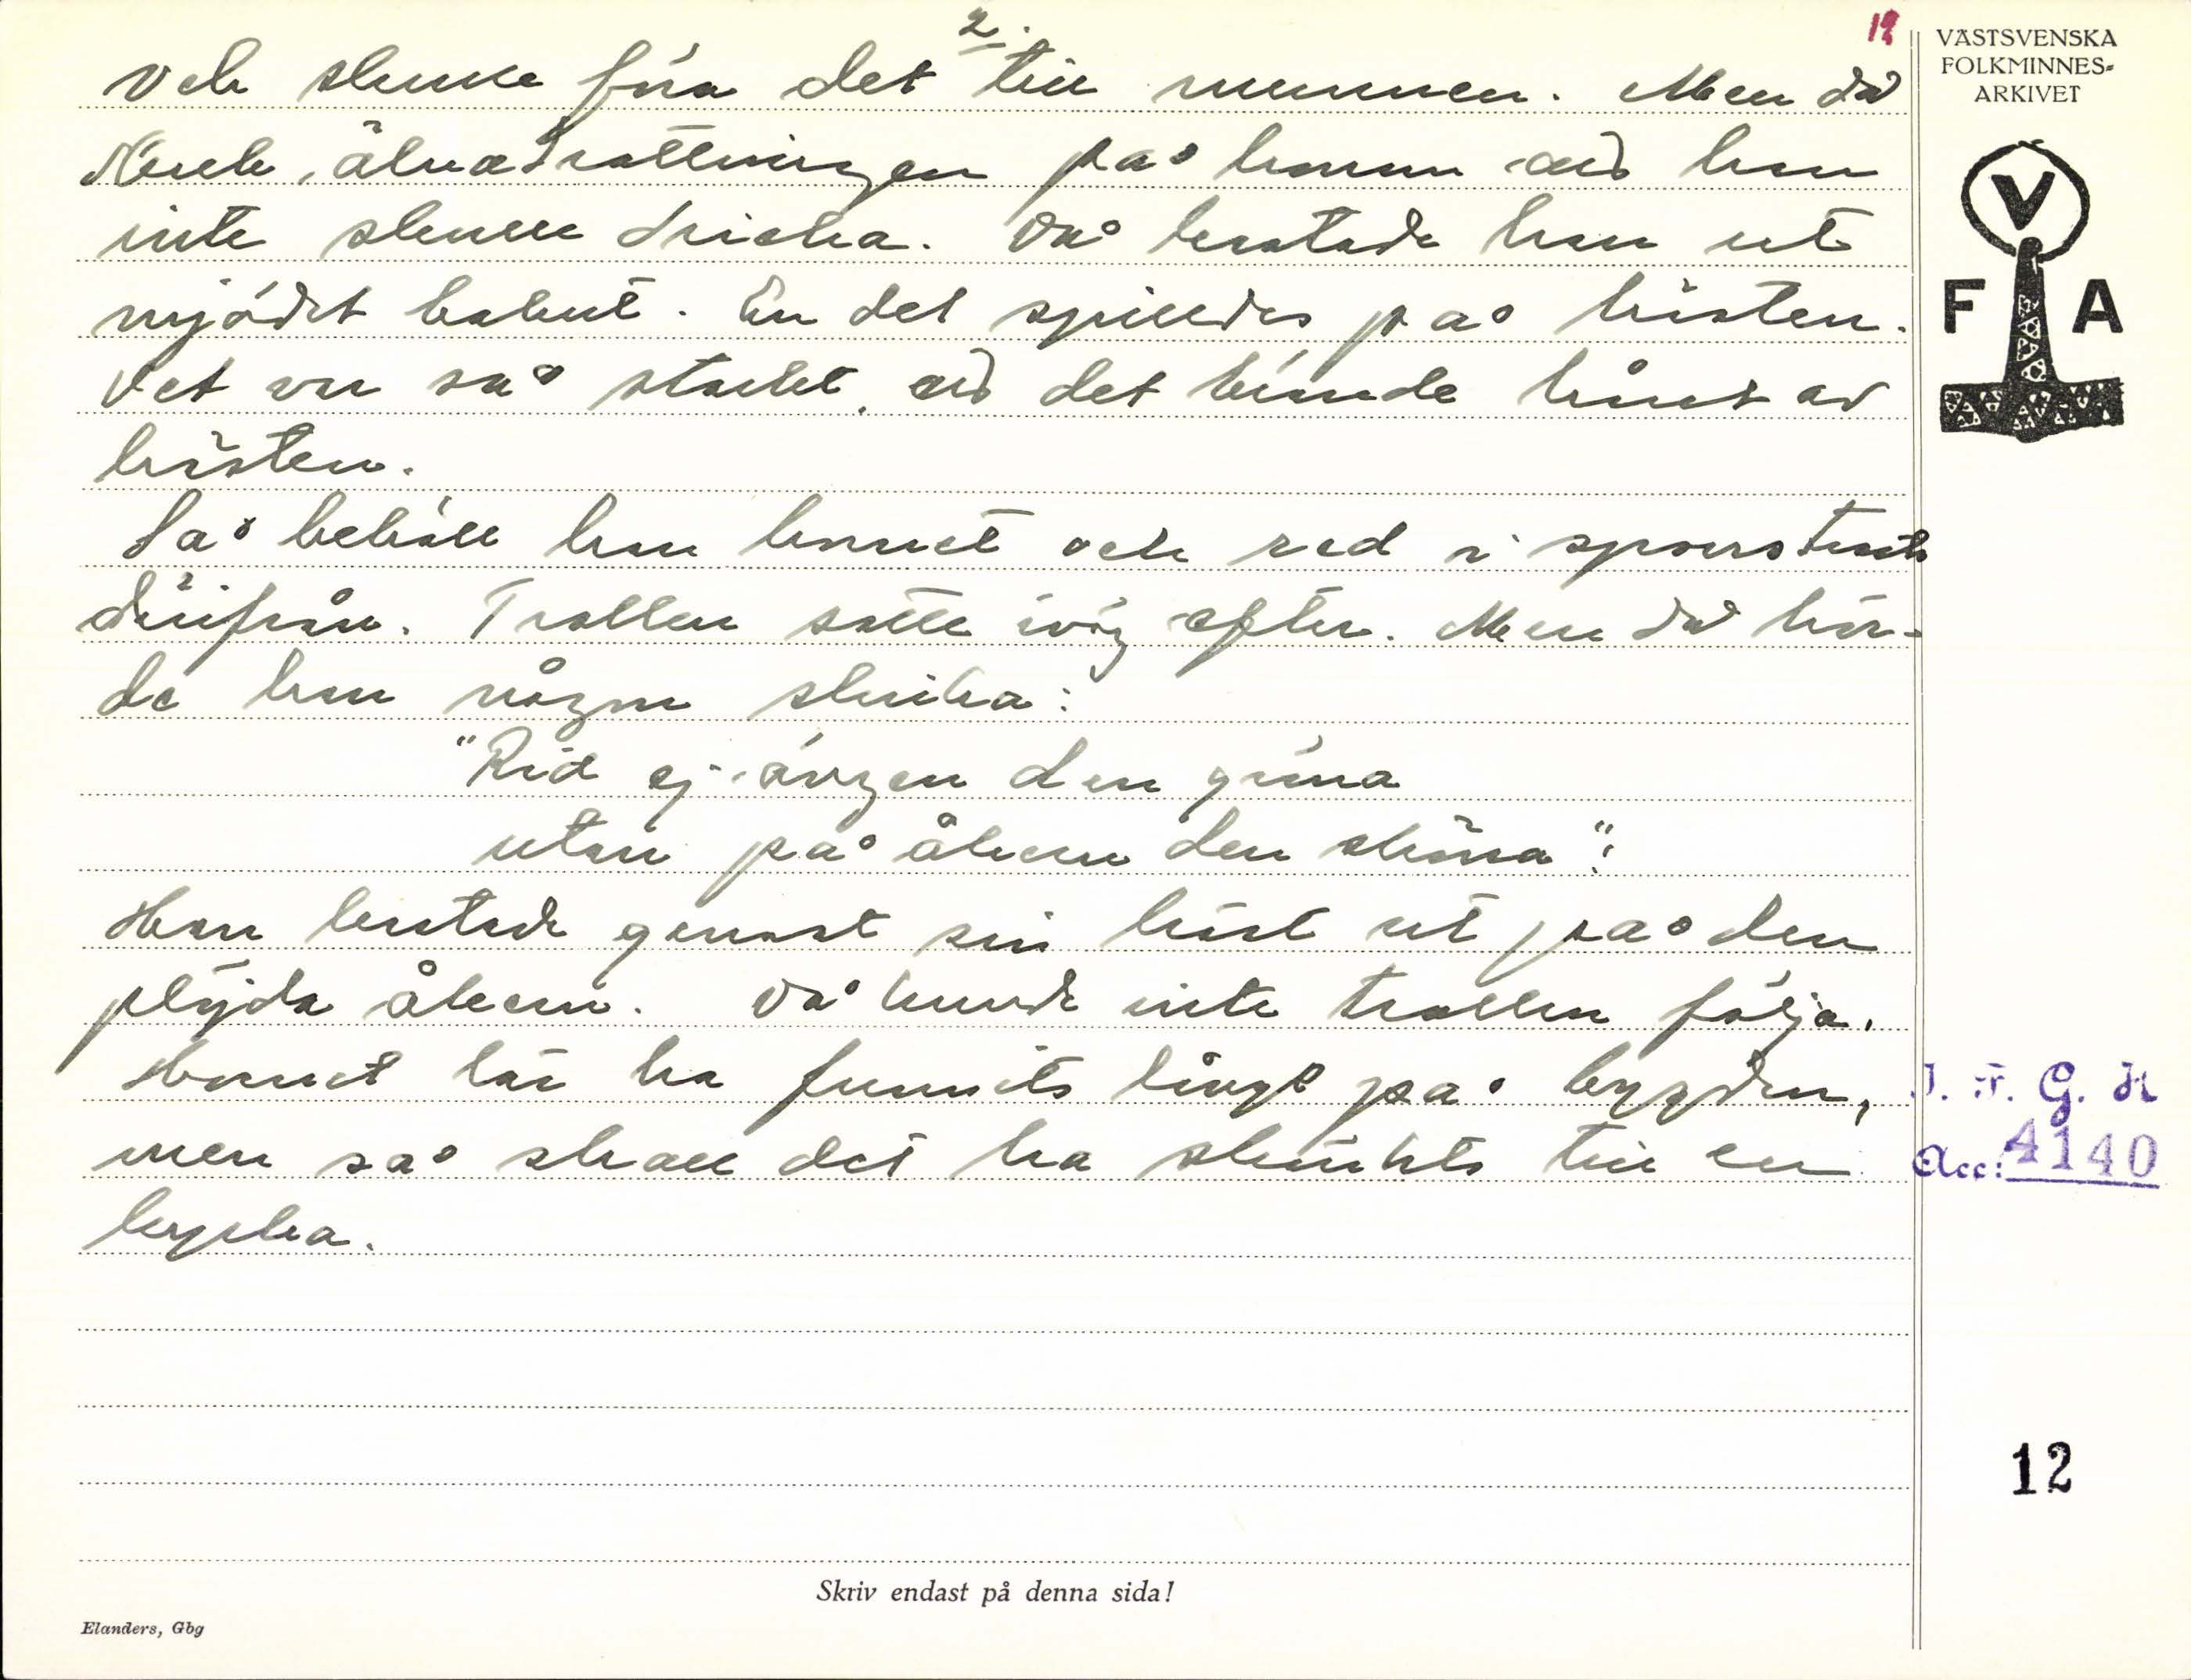 2.
12
och skulle föra det till munnen. Men då
skrek älvadrottningen på honom att han
inte skulle dricka. Då kastade han ut
mjödet bakut. En del spilldes på hästen.
Det var så starkt, att det brände håret av
hästen.
Så behöll han hornet och red i sporrsträck
därifrån. Trollen satte iväg efter. Men då hör-
de han någon skrika:
"Rid ej ängen den gröna
utan på åkern den sköna".
Han kastade genast sin häst ut på den
plöjda åkern. Då kunde inte trollen följa.
Hornet lär ha funnits länge på bygden,
men så skall det ha skänkts till en
kyrka.
VÄSTSVENSKA
FOLKMINNES-
ARKIVET
V
F A
I. F. G. H
Acc: 4140
12
Skriv endast på denna sida!
Elanders, Gbg